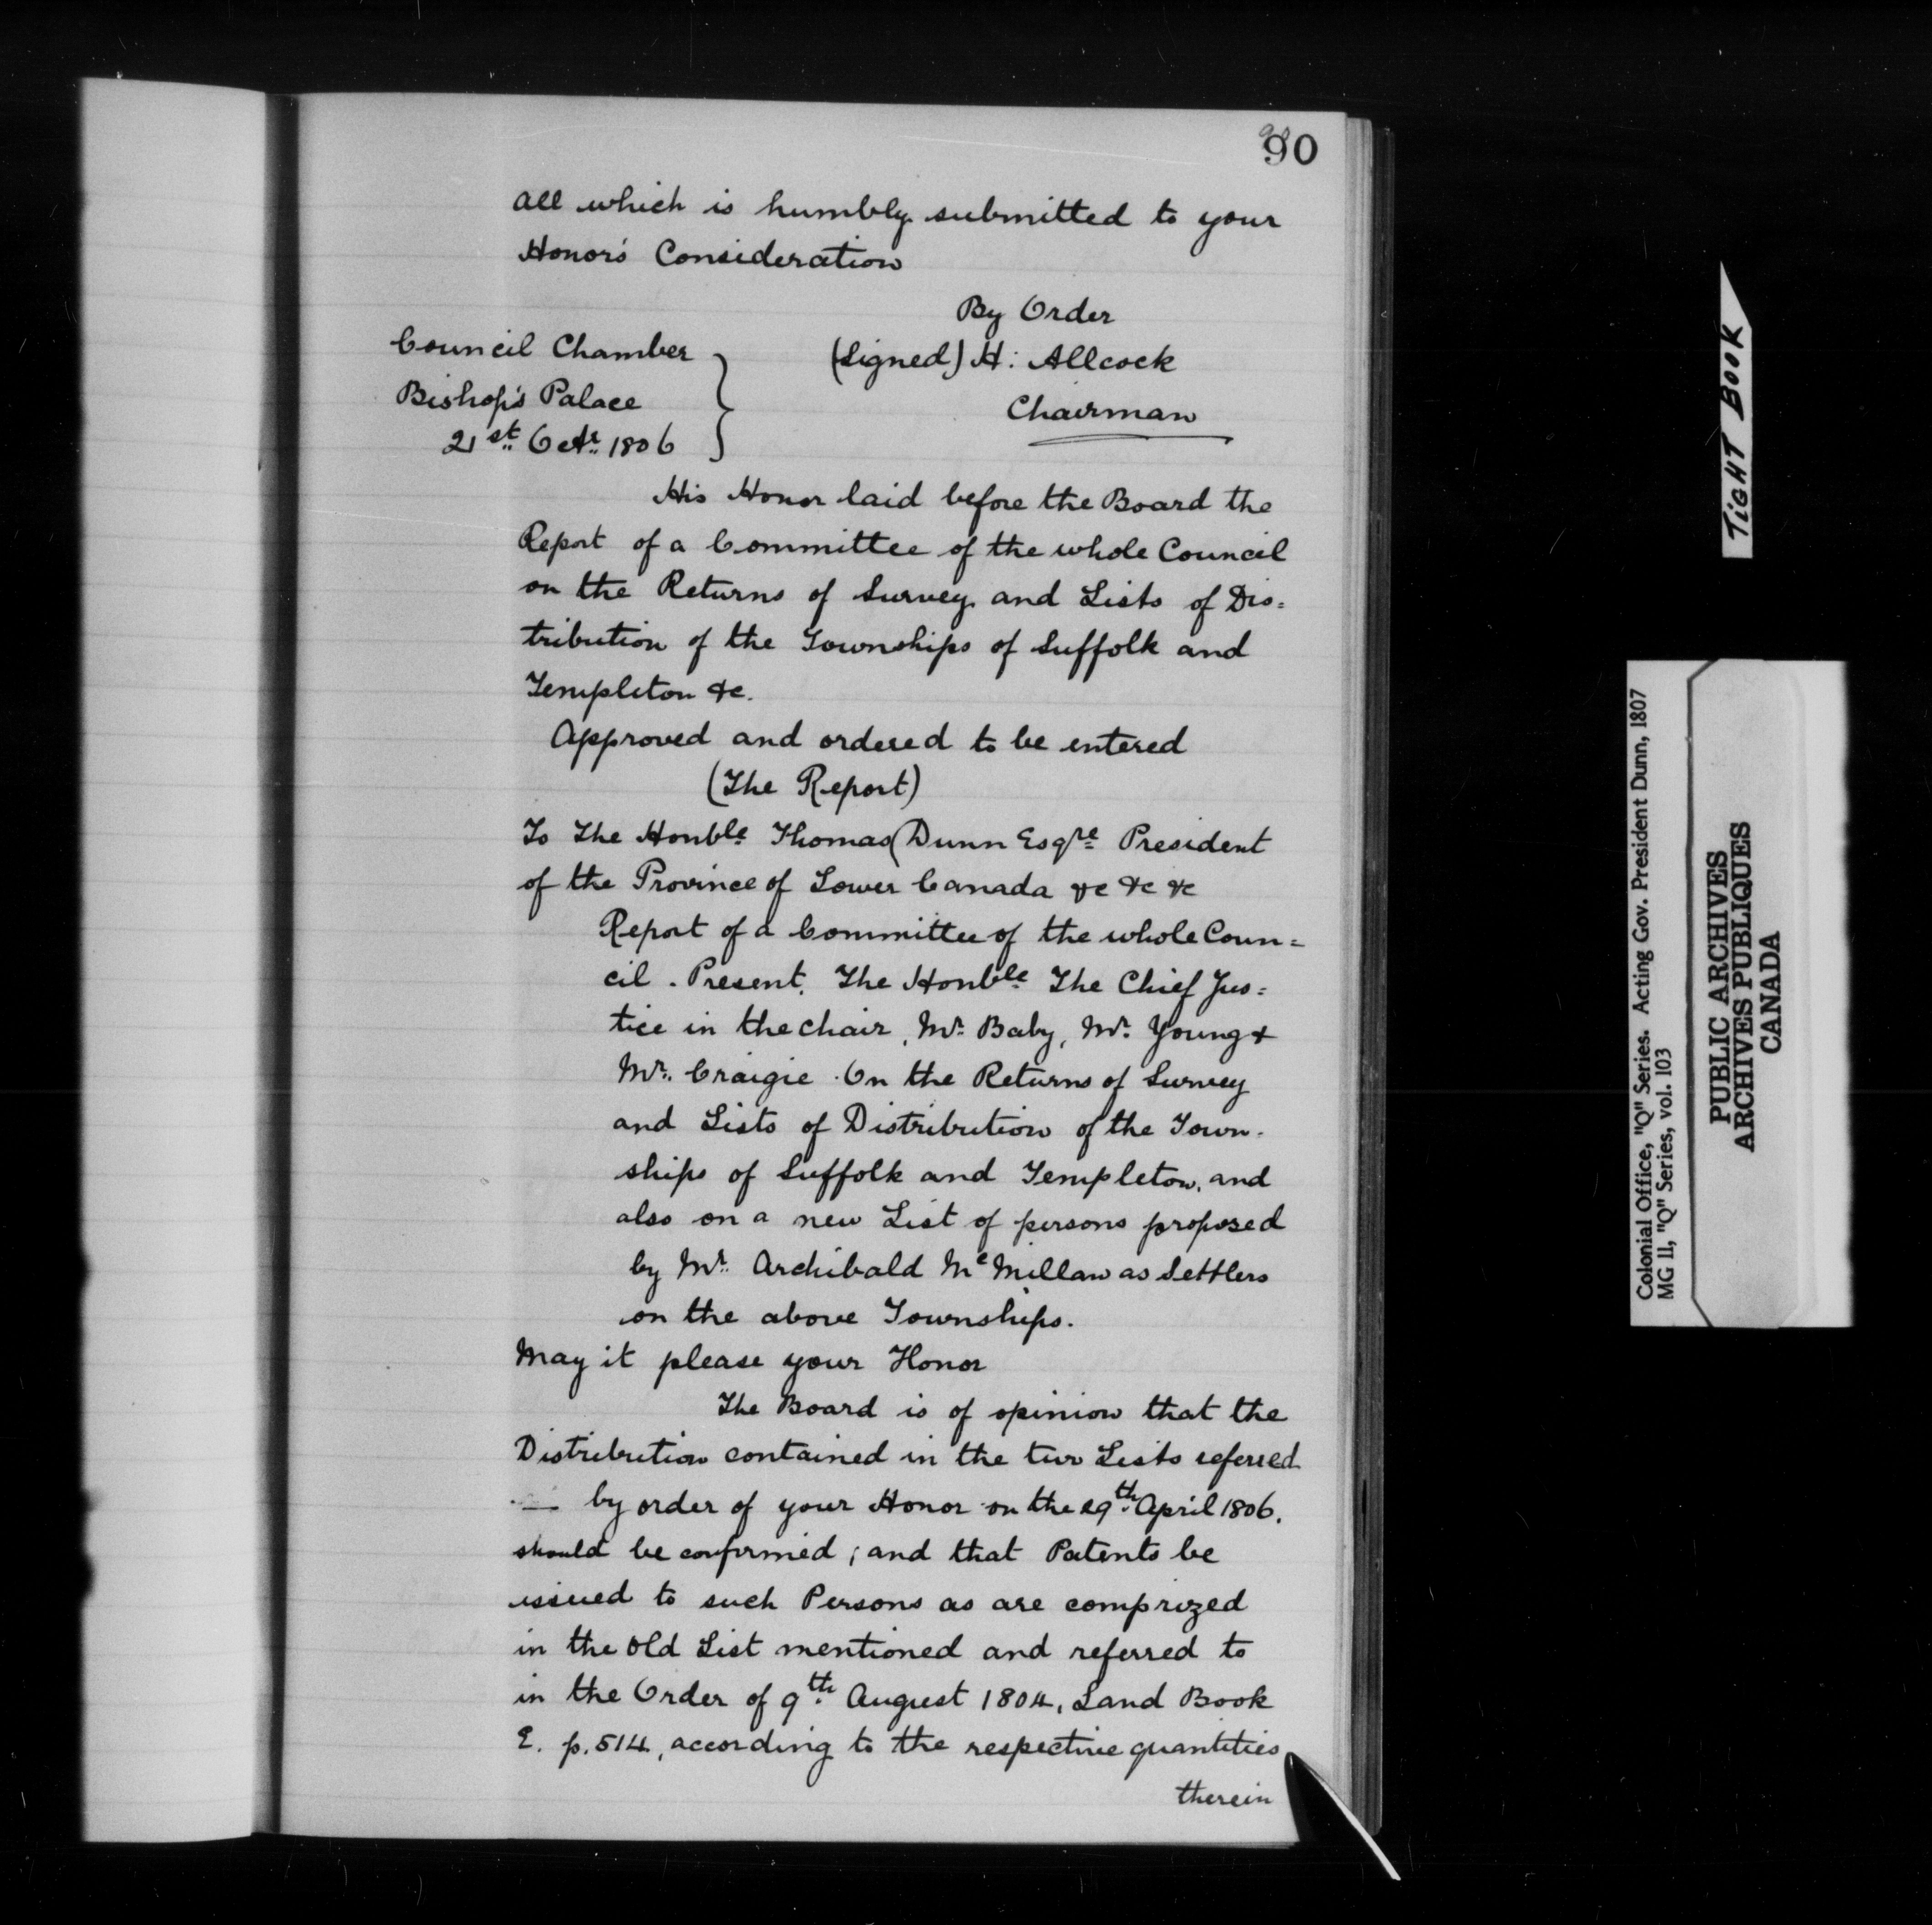 90
all which is humbly submitted to your
Honor's Consideration
By Order
Council Chamber
(signed) H: Allcock
Bishop's Palace
Chairman
21st Octr 1806
His Honor laid before the Board the
Report of a Committee of the whole Council
on the Returns of Survey and Lists of Dis=
tribution of the Townships of Suffolk and
Templeton &c.
Approved and ordered to be entered
(The Report)
To The Honble Thomas Dunn Esqre President
of the Province of Lower Canada &c &c &c
Report of a Committee of the whole Coun=
cil. Present, The Honble The Chief Jus=
tice in the chair, Mr. Baby, Mr. Young &
Mr. Craigie. On the Returns of Survey
and Lists of Distribution of the Town-
ships of Suffolk and Templeton, and
also on a new List of persons proposed
by Mr. Archibald McMillan as Settlers
on the above Townships.
May it please your Honor
The Board is of opinion that the
Distribution contained in the two Lists referred
by order of your Honor on the 29th April 1806.
should be confirmed; and that Patents be
issued to such Persons as are comprized
in the Old List mentioned and referred to
in the Order of 9th August 1804, Land Book
E. p. 514, according to the respective quantities
therein
TIGHT BOOK
Colonial Office, "Q" Series. Acting Gov. President Dunn, 1807
MG 11, "Q" Series, vol. 103
PUBLIC ARCHIVES
ARCHIVES PUBLIQUES
CANADA